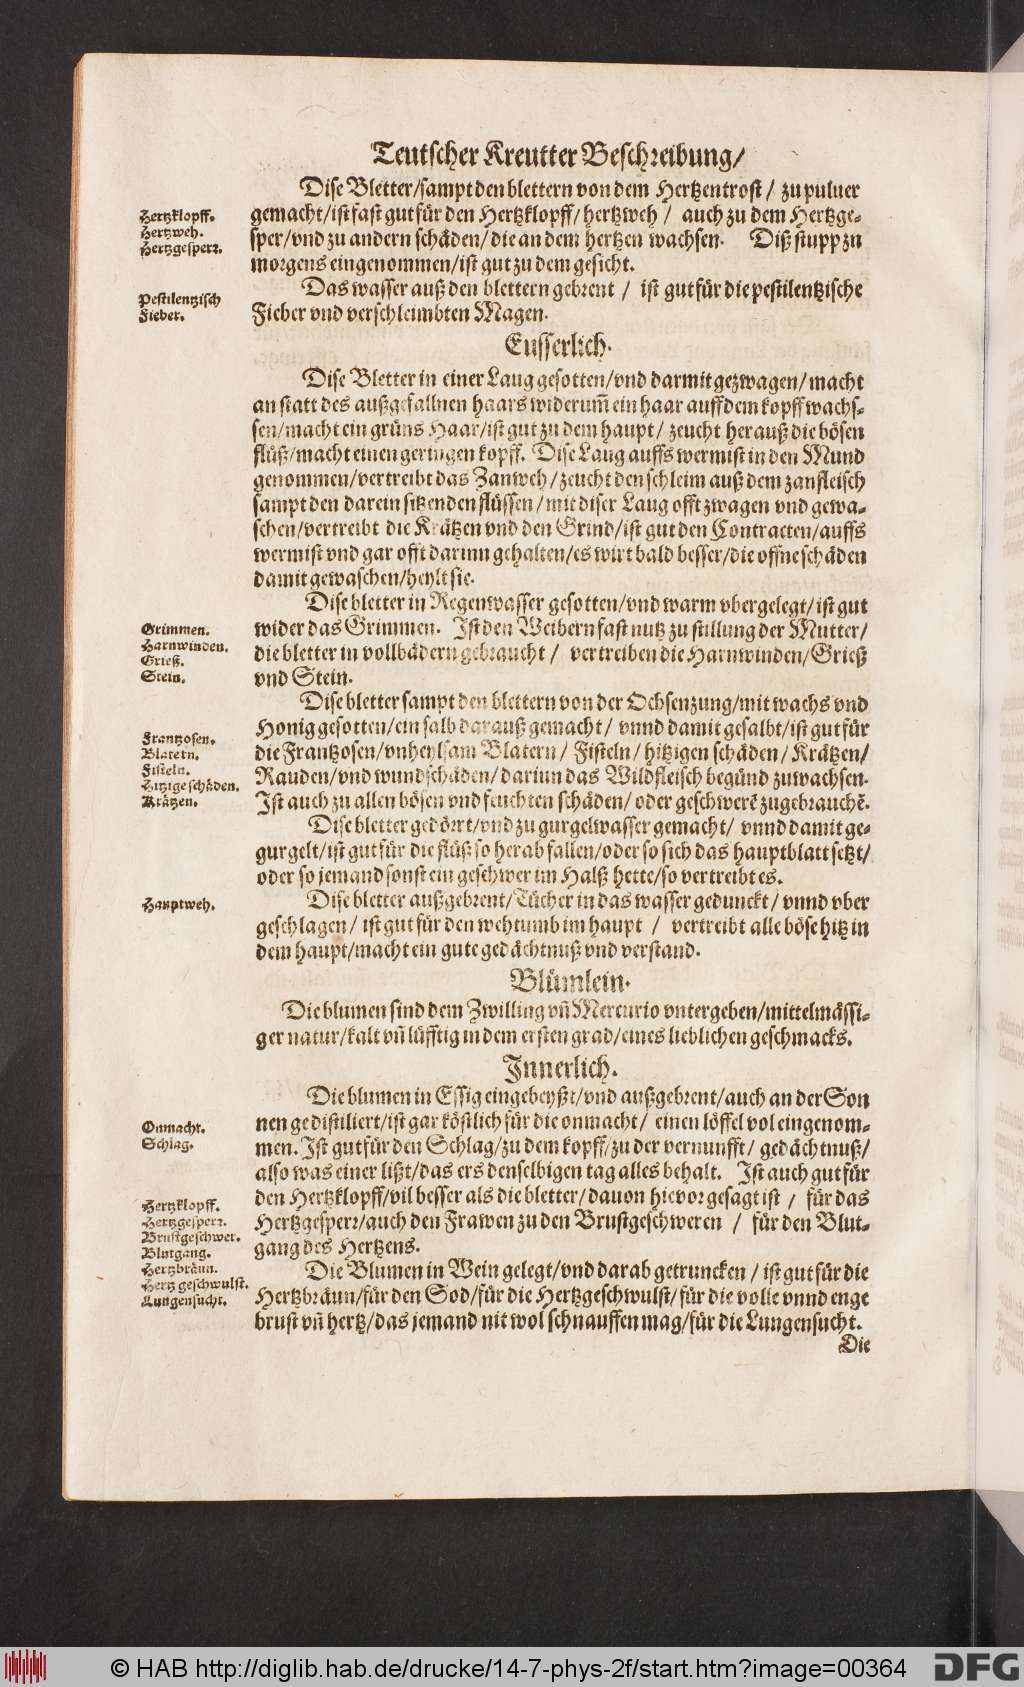 Teutscher Kreutter Beschreibung/
Dise Bletter/sampt den blettern von dem Hertzentrost/ zu puluer
Hertzklopff.
gemacht/ist fast gut für den Hertzklopff/hertzweh/ auch zu dem Hertzge-
Hertzweh.
sper/vnd zu andern schäden/die an dem hertzen wachsen. Diß stupp zu
Hertzgesperr.
morgens eingenommen/ist gut zu dem gesicht.
Das wasser auß den blettern gebrent/ ist gut für die pestilentzische
Pestilentzisch
Fieber.
Fieber vnd verschleimbten Magen.
Eusserlich.
Dise Bletter in einer Laug gesotten/vnd darmit gezwagen/macht
an statt des außgefallnen haars widerum̃ ein haar auff dem kopff wachs-
sen/macht ein grüns Haar/ist gut zu dem haupt/ zeucht herauß die bösen
flüß/macht einen geringen kopff. Dise Laug auffs wermist in den Mund
genommen/vertreibt das Zanweh/zeucht den schleim auß dem zanfleisch
sampt den darein sitzenden flüssen/mit diser Laug offt zwagen vnd gewa-
schen/vertreibt die Krätzen vnd den Grind/ist gut den Contracten/auffs
wermist vnd gar offt darinn gehalten/es wirt bald besser/die offne schäden
damit gewaschen/heylt sie.
Dise bletter in Regenwasser gesotten/vnd warm vbergelegt/ist gut
Grimmen.
wider das Grimmen. Ist den Weibern fast nutz zu stillung der Mutter/
Harnwinden.
die bletter in vollbädern gebraucht/ vertreiben die Harnwinden/Grieß
Grieß.
Stein.
vnd Stein.
Dise bletter sampt den blettern von der Ochsenzung/mit wachs vnd
Honig gesotten/ein salb darauß gemacht/ vnnd damit gesalbt/ist gut für
Frantzosen.
die Frantzosen/vnheylsam Blatern/ Fisteln/hitzigen schäden/Krätzen/
Blatern.
Fisteln.
Rauden/vnd wundschäden/dariun das Wildfleisch begünd zuwachsen.
Hitzige schäden.
Krätzen.
Ist auch zu allen bösen vnd feuchten schäden/oder geschwerẽ zugebrauchẽ.
Dise bletter gedörrt/vnd zu gurgelwasser gemacht/ vnnd damit ge-
gurgelt/ist gut für die flüß so herab fallen/oder so sich das hauptblatt setzt/
oder so jemand sonst ein geschwer im Halß hette/so vertreibt es.
Hauptweh.
Dise bletter außgebrent/Tücher in das wasser gedunckt/ vnnd vber
geschlagen/ ist gut für den wehtumb im haupt/ vertreibt alle böse hitz in
dem haupt/macht ein gute gedächtnuß vnd verstand.
Blümlein.
Die blumen sind dem Zwilling vñ Mercurio vntergeben/mittelmässi-
ger natur/kalt vñ lüfftig in dem ersten grad/eines lieblichen geschmacks.
Innerlich.
Die blumen in Essig eingebeyßt/vnd außgebrent/auch an der Son
nen gedistiliert/ist gar köstlich für die onmacht/ einen löffel vol eingenom-
Onmacht.
Schlag.
men. Ist gut für den Schlag/zu dem kopff/zu der vernunfft/ gedächtnuß/
also was einer lißt/das ers denselbigen tag alles behalt. Ist auch gut für
den Hertzklopff/vil besser als die bletter/dauon hieuor gesagt ist/ für das
Hertzklopff.
Hertzgesperr.
Hertzgesperr/auch den Frawen zu den Brustgeschweren/ für den Blut-
Brustgeschwer.
Blutgang.
gang des Hertzens.
Hertzbräun.
Die Blumen in Wein gelegt/vnd darab getruncken/ ist gut für die
Hertz geschwulst.
Hertzbräun/für den Sod/für die Hertzgeschwulst/für die volle vnnd enge
Lungensucht.
brust vñ hertz/das jemand nit wol schnauffen mag/für die Lungensucht.
Die
© HAB http://diglib.hab.de/drucke/14-7-phys-2f/start.htm?image=00364
DFG